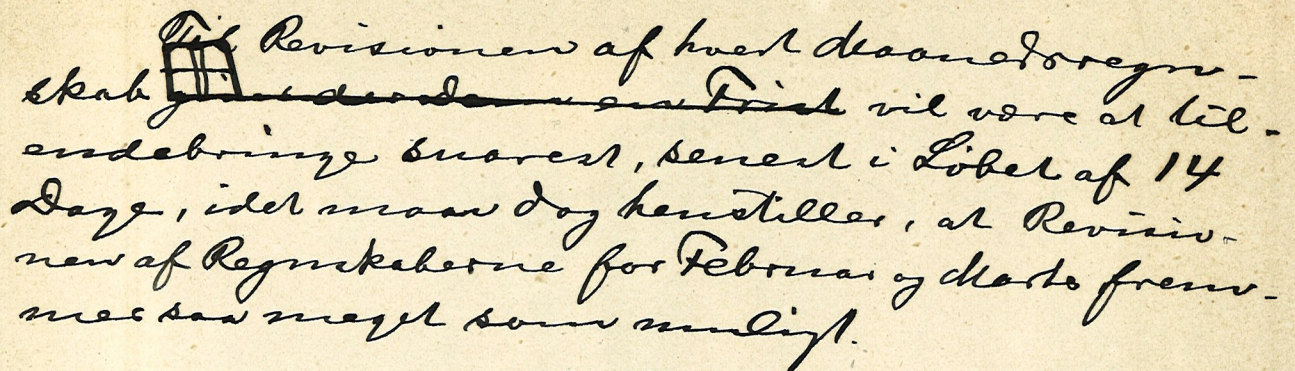 Til Revisionen af hvert Maanedsregn-
skab gives der Dem en Frist vil være at til-
endebringe snarest, senest i Løbet af 14
Dage, idet man dog henstiller, at Revisio-
nen af Regnskaberne for Februar og Marts frem-
mes saa meget som muligt.